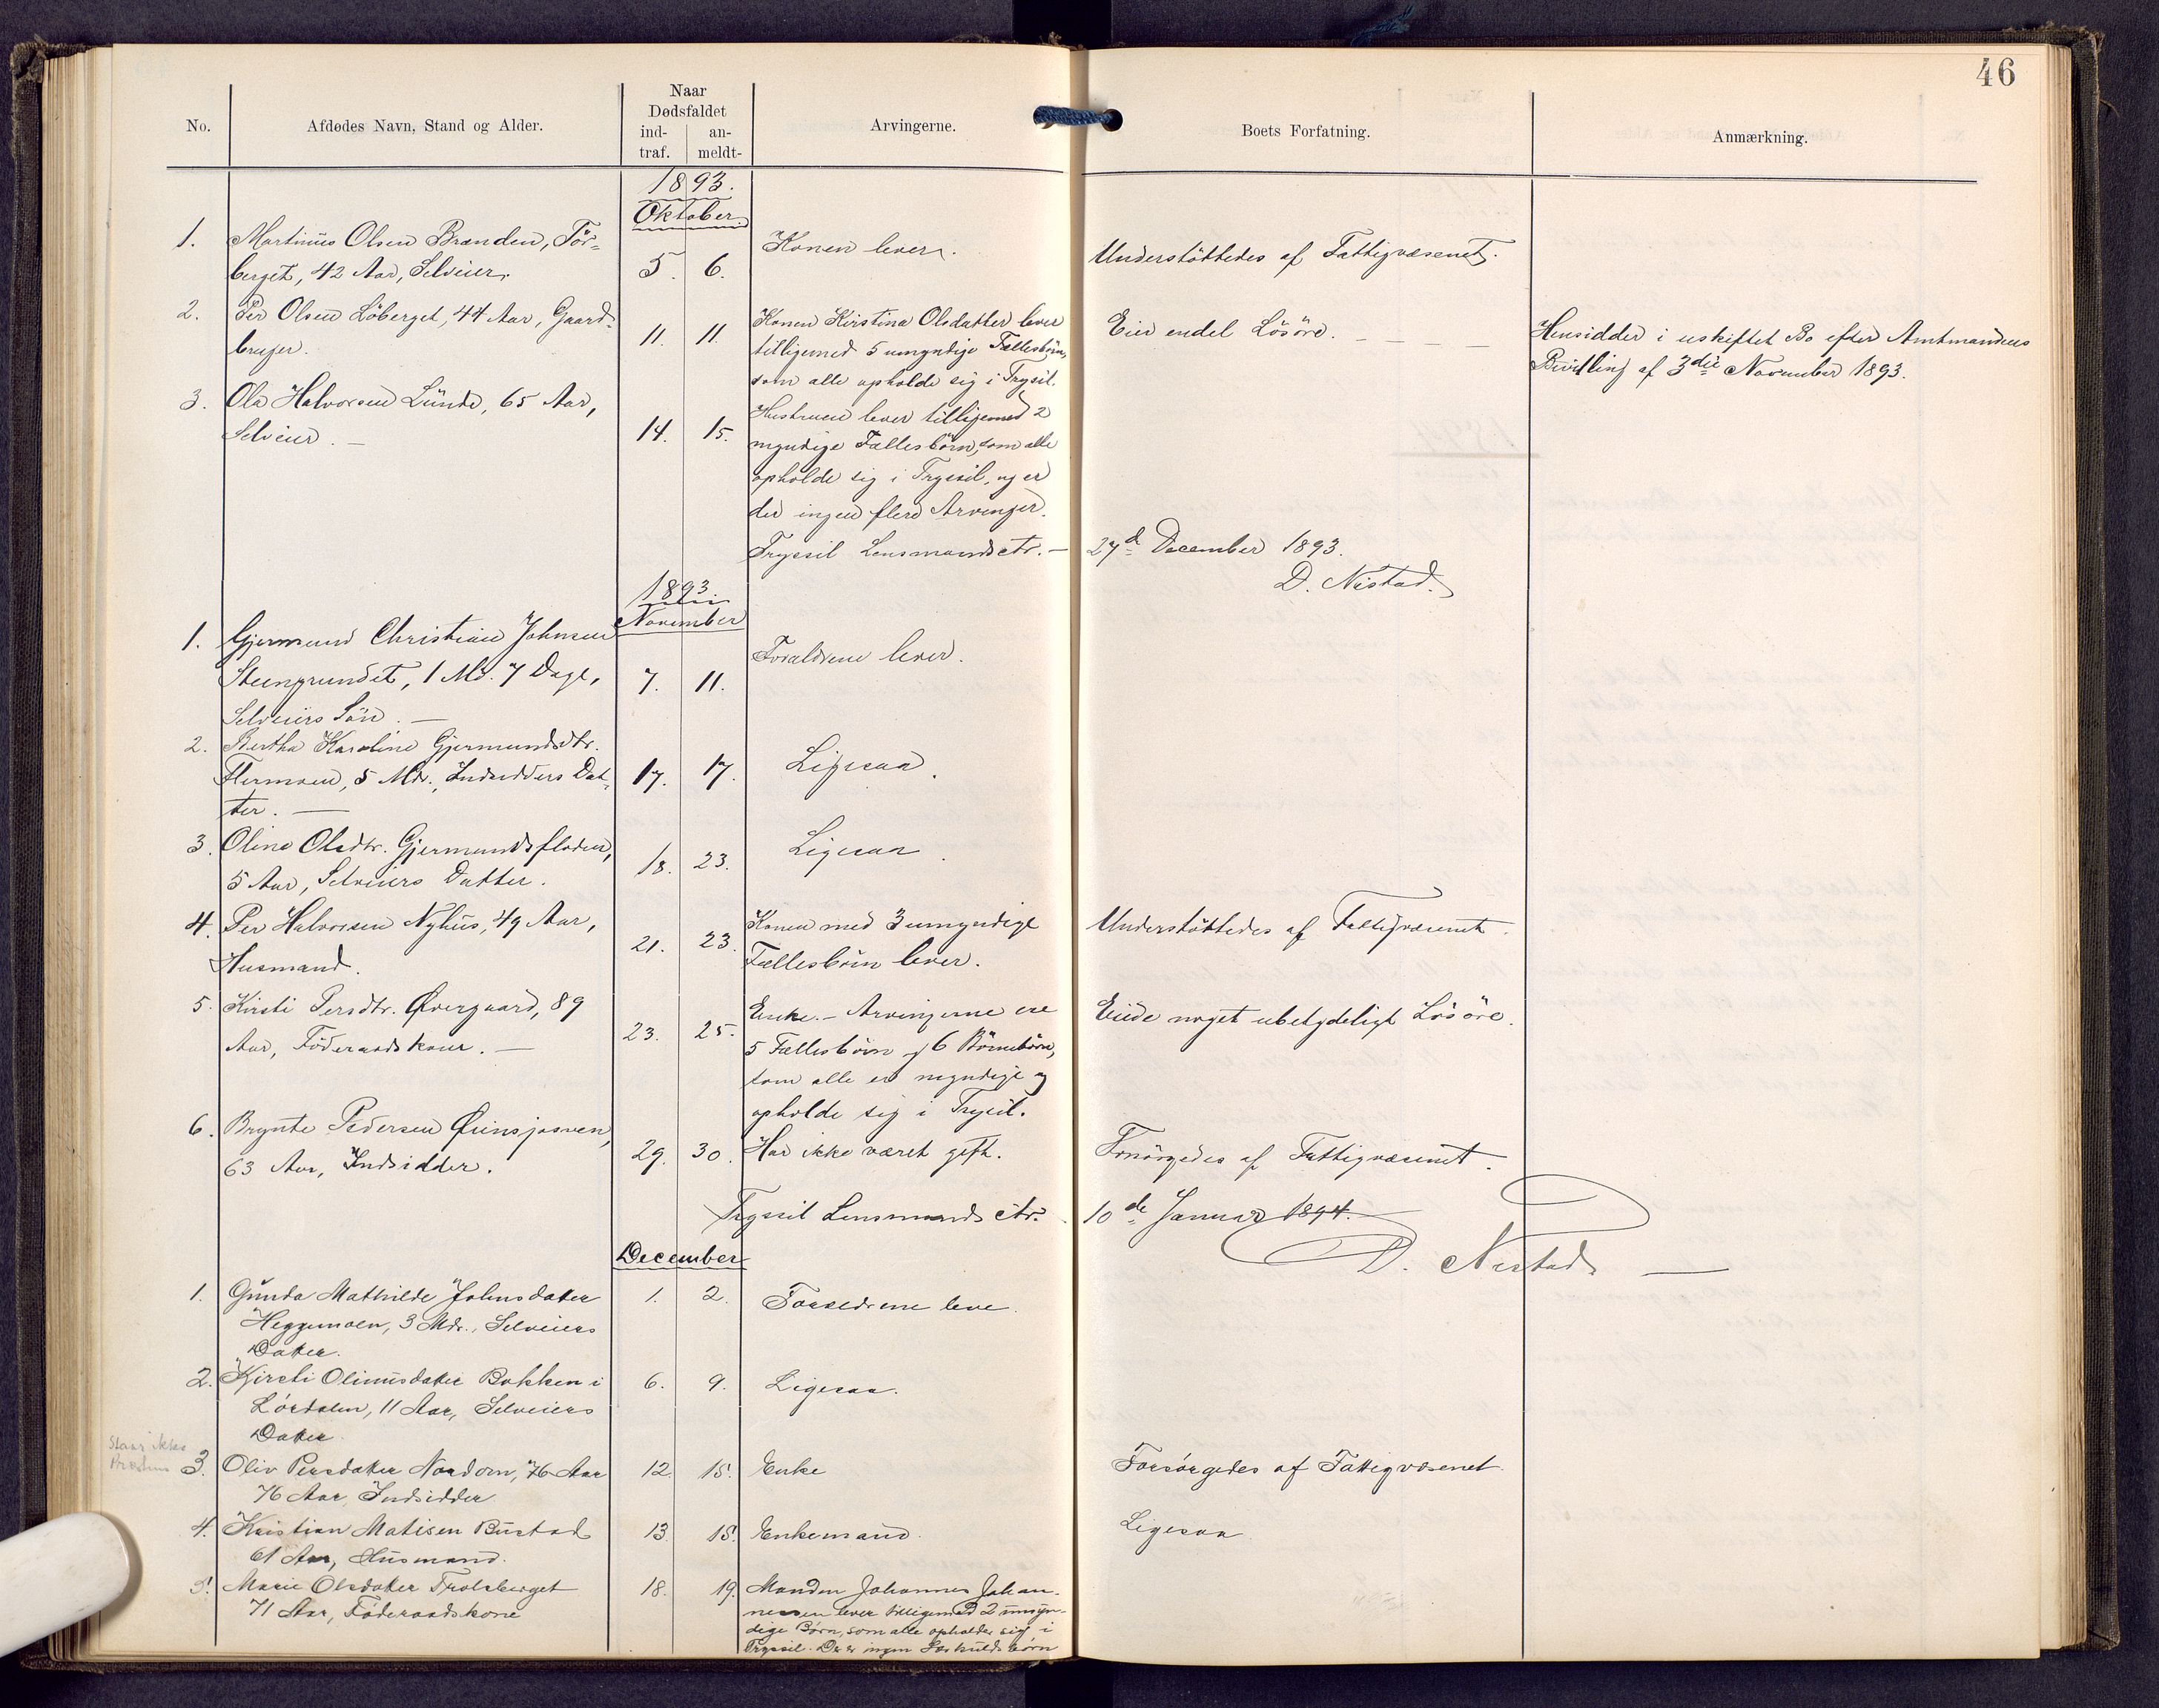 46
No.
Afdødes Navn, Stand og Alder.
Naar
Dødsfaldet
ind-
traf.
an-
meldt-
Arvingerne.
Boets Forfatning.
Anmærkning.
1893.
Oktober
1. Martinus Olsen Brænden, Tör-
berget, 42 Aar, Selveier.
5. 6.
Konen lever.
Understöttedes af Fattigvæsenet.
2. Per Olsen Löberget, 44 Aar, Gaard-
bruger.
11. 11.
Konen Kirstina Olsdatter lever
tilligemed 5 umyndige Fællesbörn,
som alle opholde sig i Trysil.
Eier endel Lösöre.
Hensidder i uskiftet Bo efter Amtmandens
Bevilling af 3die November 1893.
3. Ole Halvorsen Lunde, 65 Aar,
Selveier. —
14. 15.
Hustruen lever tilligemed 2
myndige Fællesbörn, som alle
opholde sig i Tryssil, og er
der ingen flere Arvinger.
Tryssil Lensmandsctr. — 27de December 1893.
D. Nestad.
1893
November
1. Gjermund Christian Johnsen
Steengrundet, 1 Md. 7 Dage,
Selveiers Sön. —
7. 11.
Forældrene lever.
2. Bertha Karoline Gjermundsdtr.
Flermoen, 5 Mdr., Indsidders Dat-
ter. —
17. 17.
Ligesaa.
3. Oline Olsdtr. Gjermundsfloden,
5 Aar, Selveiers Datter.
18. 23.
Ligesaa.
4. Per Halvorsen Nyhus, 49 Aar,
Husmand.
21. 23.
Konen med 3 umyndige
Fællesbörn lever.
Understöttedes af Fattigvæsenet.
5. Kirsti Persdtr. Øvergaard, 89
Aar, Föderaadskone. —
23. 25.
Enke. — Arvingerne ere
5 Fællesbörn og 6 Börnebörn,
som alle er myndige og
opholde sig i Trysil.
Eiede noget ubetydeligt Lösöre.
6. Brynte Pedersen
63 Aar, Indsidder.
29. 30.
Har ikke været gift.
Forsörgedes af Fattigvæsenet.
Tryssil Lensmandsctr. 10de Januar 1894.
D. Nestad
December
1. Gunda Mathilde Johnsdatter
Heggemoen, 3 Mdr., Selveiers
Datter.
1. 2.
Forældrene leve.
2. Kirsti Olinusdatter Bakken i
Lördalen, 11 Aar, Selveiers
Datter.
6. 9.
Ligesaa.
Staar ikke
3. Oliv Persdatter Nordom, 76 Aar
76 Aar, Indsidder
12. 15.
Enke
Forsörgedes af Fattigvæsenet.
4. Kristian Matisen Bustad
61 Aar, Husmand.
13. 15.
Enkemand.
Ligesaa
5. Marie Olsdatter Trolsberget
71 Aar, Föderaadskone
18. 19.
Manden Johannes Johan-
nessen lever tilligemed 2 umyn-
dige Børn, som alle opholder sig i
Tryssil. Der er ingen Særkuldsbørn